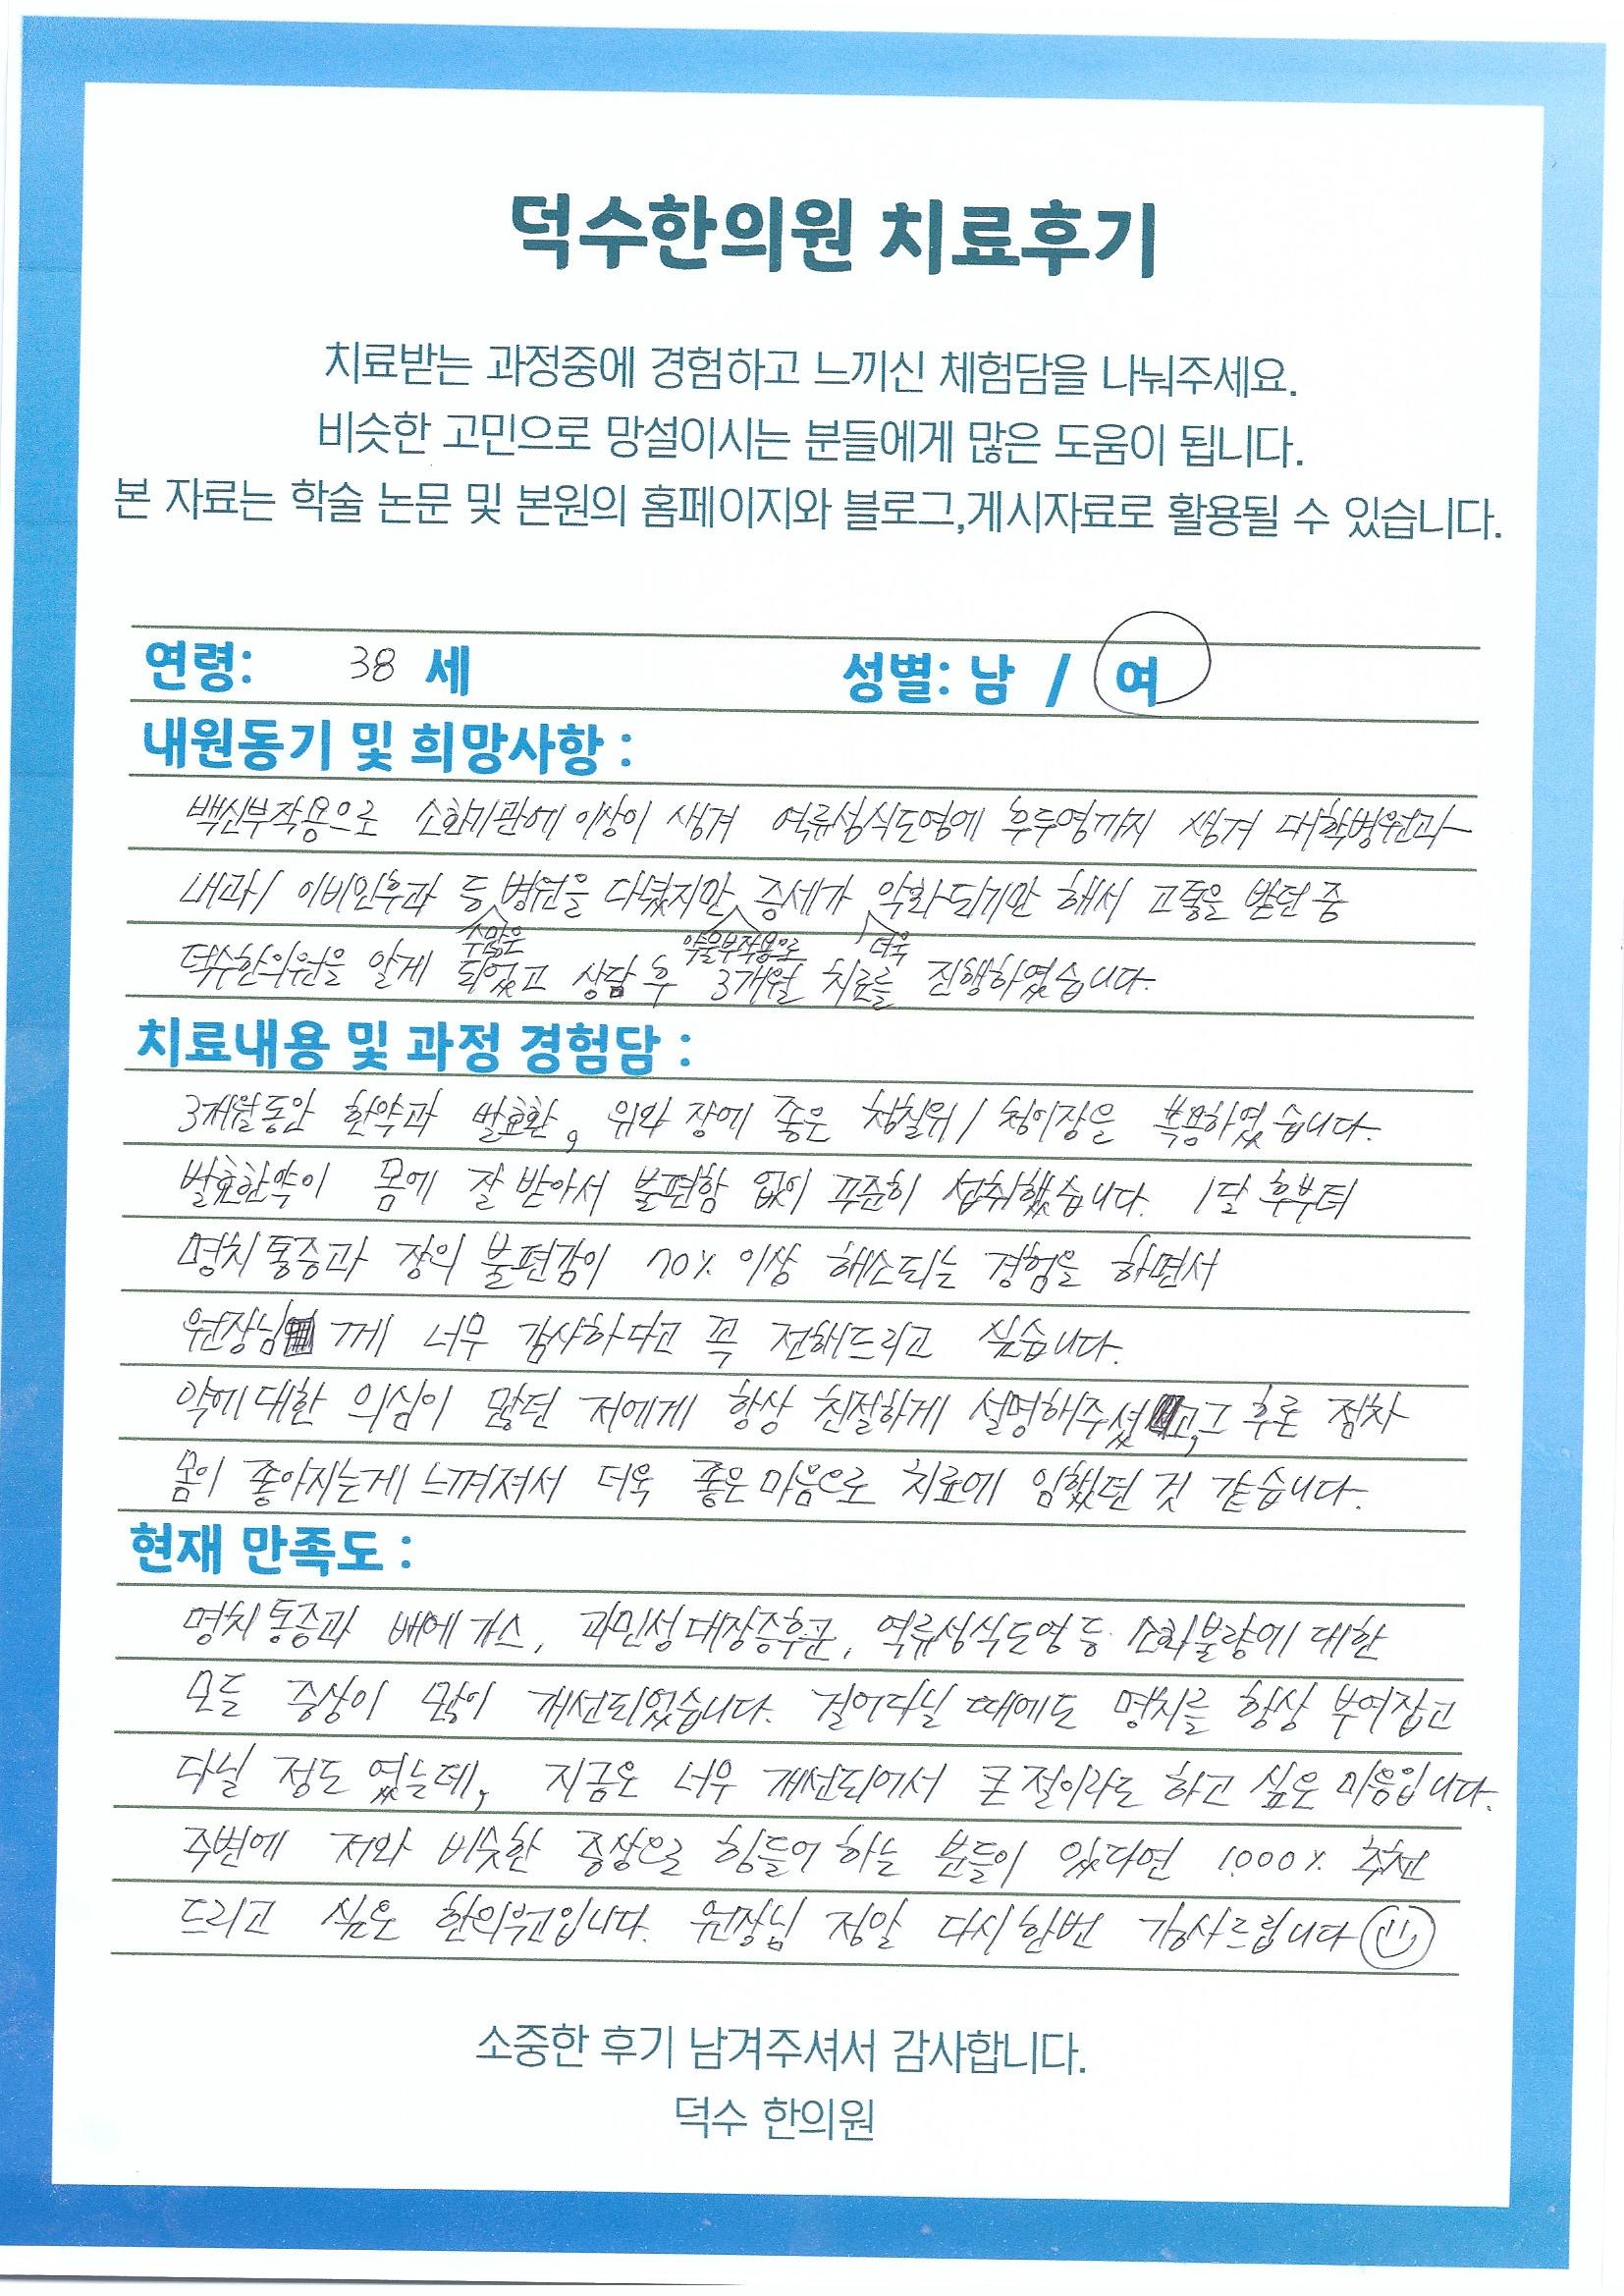 덕수한의원 치료후기
치료받는 과정중에 경험하고 느끼신 체험담을 나눠주세요.
비슷한 고민으로 망설이시는 분들에게 많은 도움이 됩니다.
본 자료는 학술 논문 및 본원의 홈페이지와 블로그,게시자료로 활용될 수 있습니다.
연령: 38 세 성별: 남 / 여
내원동기 및 희망사항 :
백신부작용으로 소화기관에 이상이 생겨 역류성식도염에 후두염까지 생겨 대학병원과
내과/ 이비인후과 등 수많은 병원을 다녔지만 약물부작용으로 증세가 더욱 악화되기만 해서 고통을 받던 중
덕수한의원을 알게 되었고 상담 후 3개월 치료를 진행하였습니다.
치료내용 및 과정 경험담 :
3개월동안 한약과 발효환, 위와 장에 좋은 청장을 복용하였습니다.
발효한약이 몸에 잘 받아서 불편함 없이 꾸준히 섭취했습니다. 1달 후부터
명치 통증과 장의 불편감이 70% 이상 해소되는 경험을 하면서
원장님께 너무 감사하다고 꼭 전해드리고 싶습니다.
약에 대한 의심이 많던 저에게 항상 친절하게 설명해주셨고, 그 후론 점차
몸이 좋아지는게 느껴져서 더욱 좋은 마음으로 치료에 임했던 것 같습니다.
현재 만족도 :
명치 통증과 배에 가스, 과민성대장증후군, 역류성식도염 등 소화불량에 대한
모든 증상이 많이 개선되었습니다. 걸어다닐 때에도 명치를 항상 부여잡고
다닐 정도 였는데, 지금은 너무 개선되어서 큰절이라도 하고 싶은 마음입니다.
주변에 저와 비슷한 증상으로 힘들어 하는 분들이 있다면 1,000% 추천
드리고 싶은 한의원입니다. 원장님 정말 다시 한번 감사드립니다
소중한 후기 남겨주셔서 감사합니다.
덕수 한의원